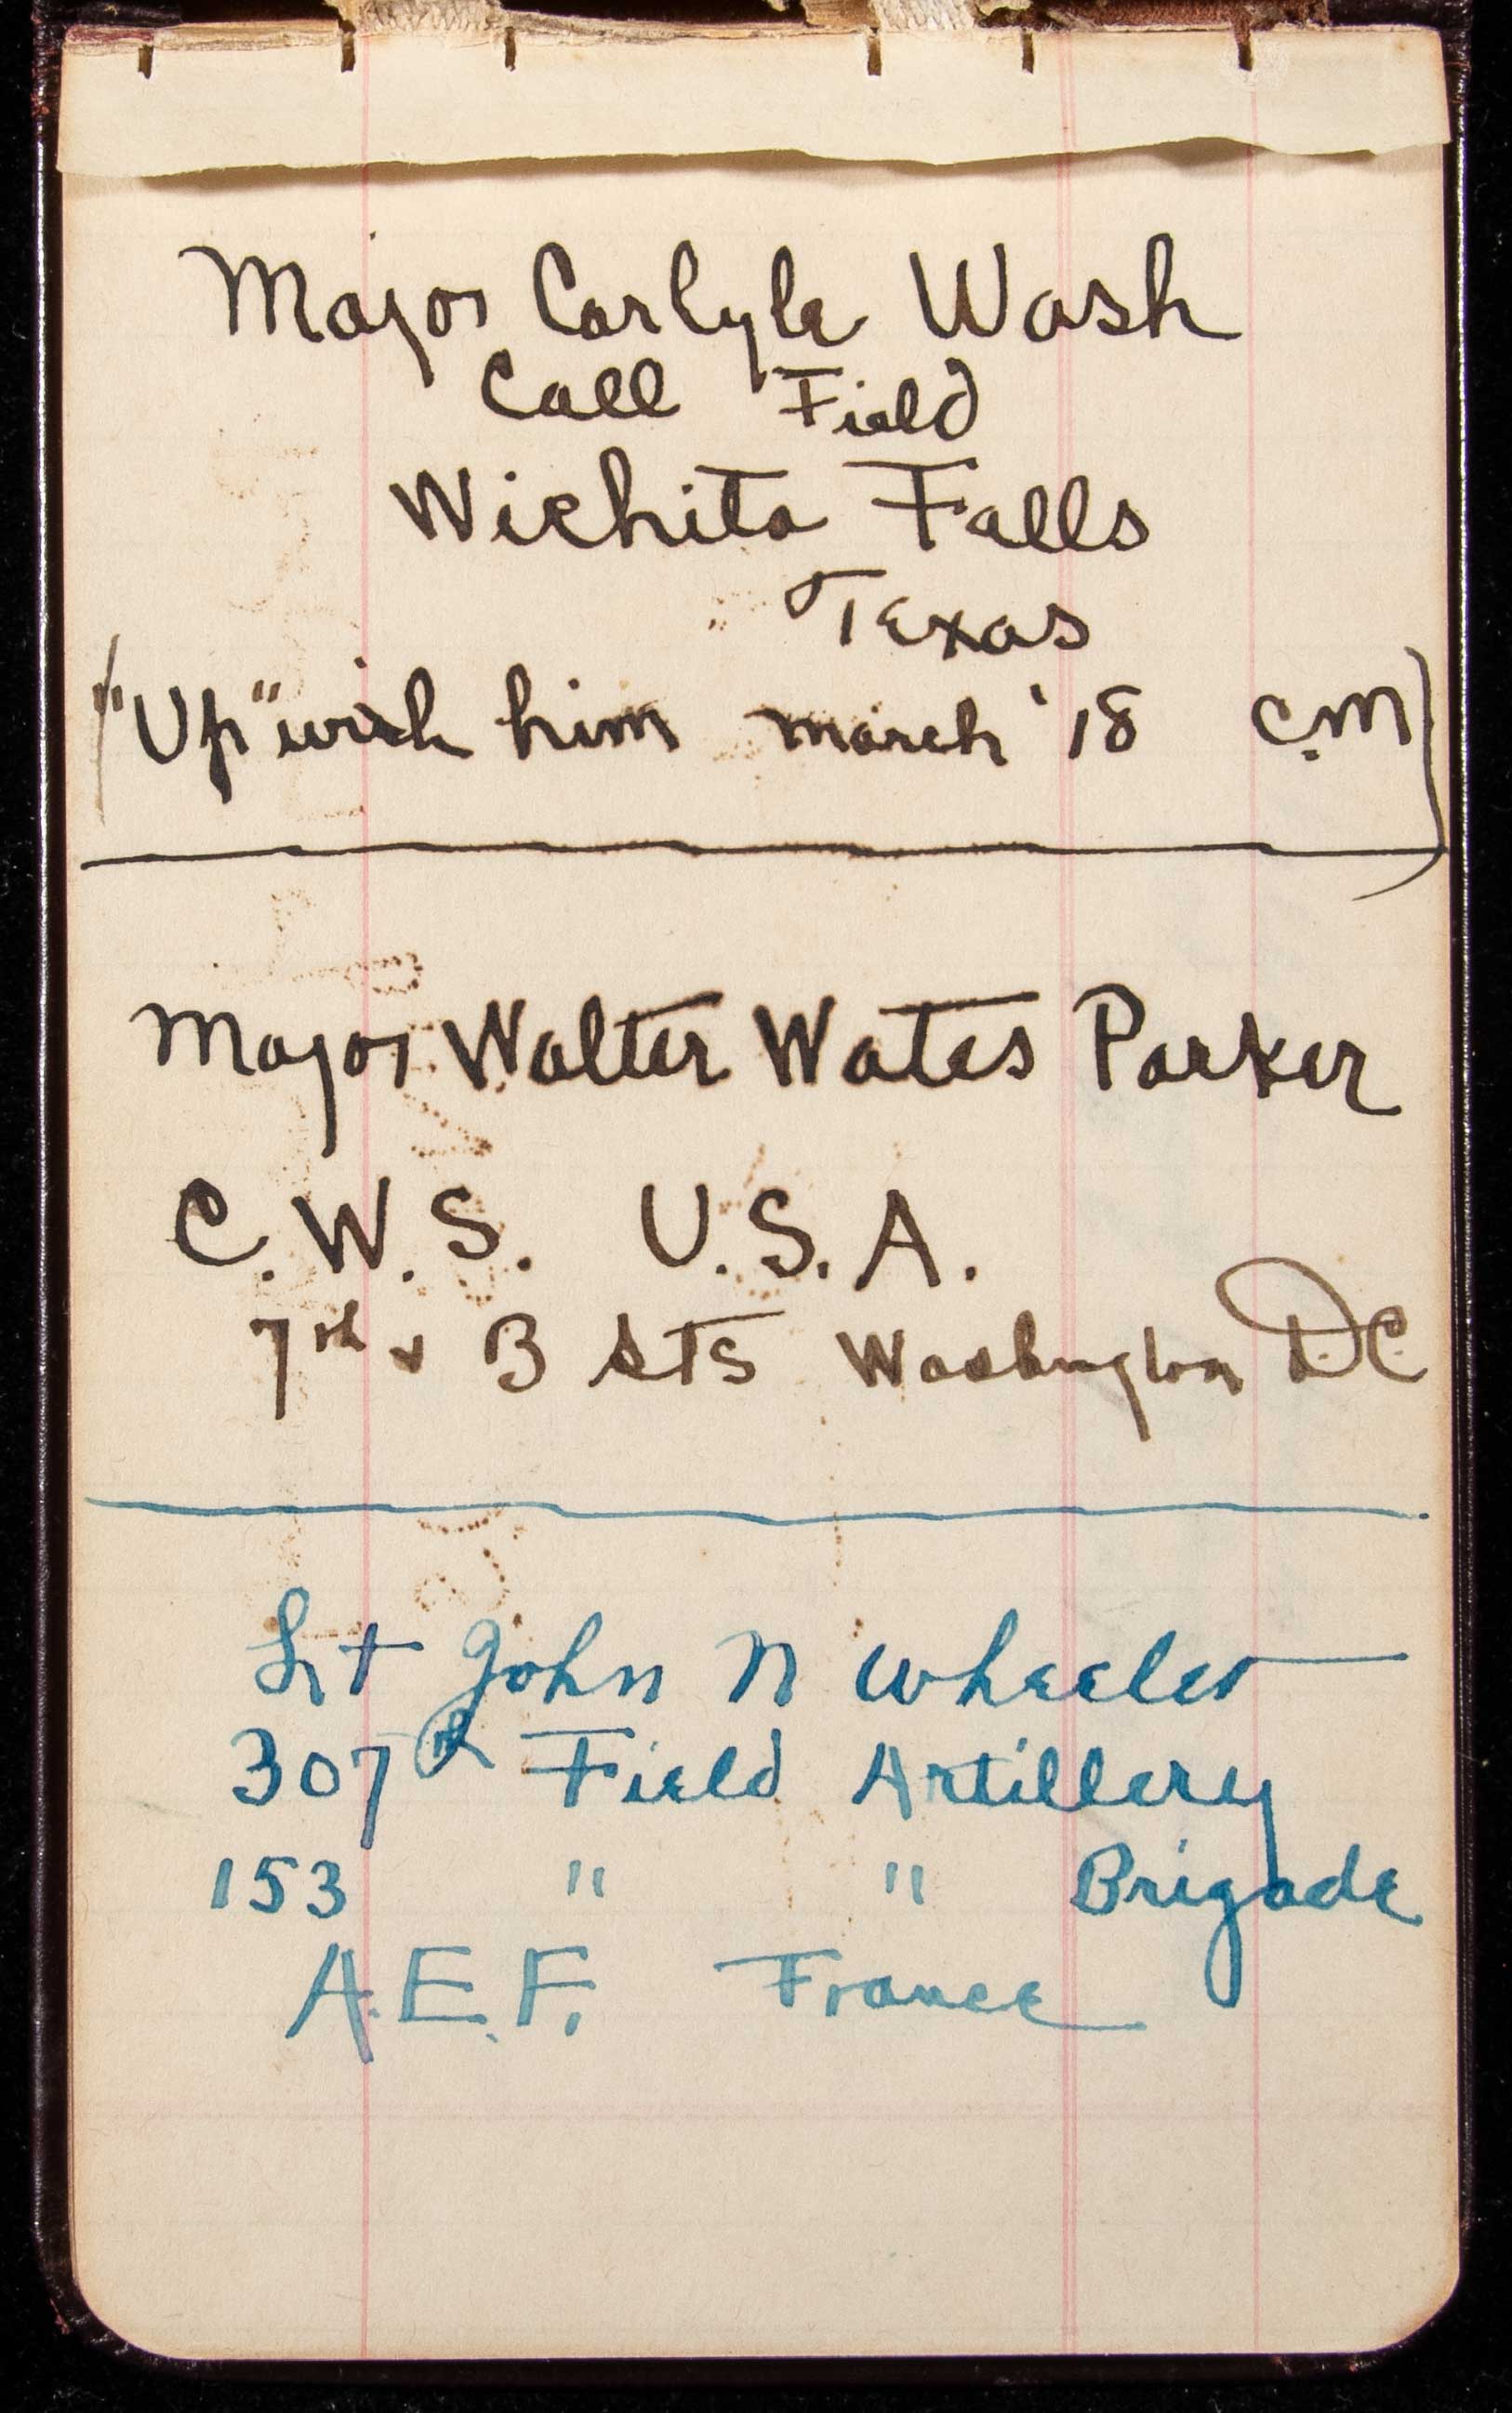 Major Carlyle Wash
Call Field
Wichita Falls
Texas
("Up" with him march '18 C.M)
Major Walter Wates Parker
C.W.S. U.S.A.
7th & B sts Washington D.C.
Lt John N Wheeler
307th Field Artillery
153 " " Brigade
A.E.F. France